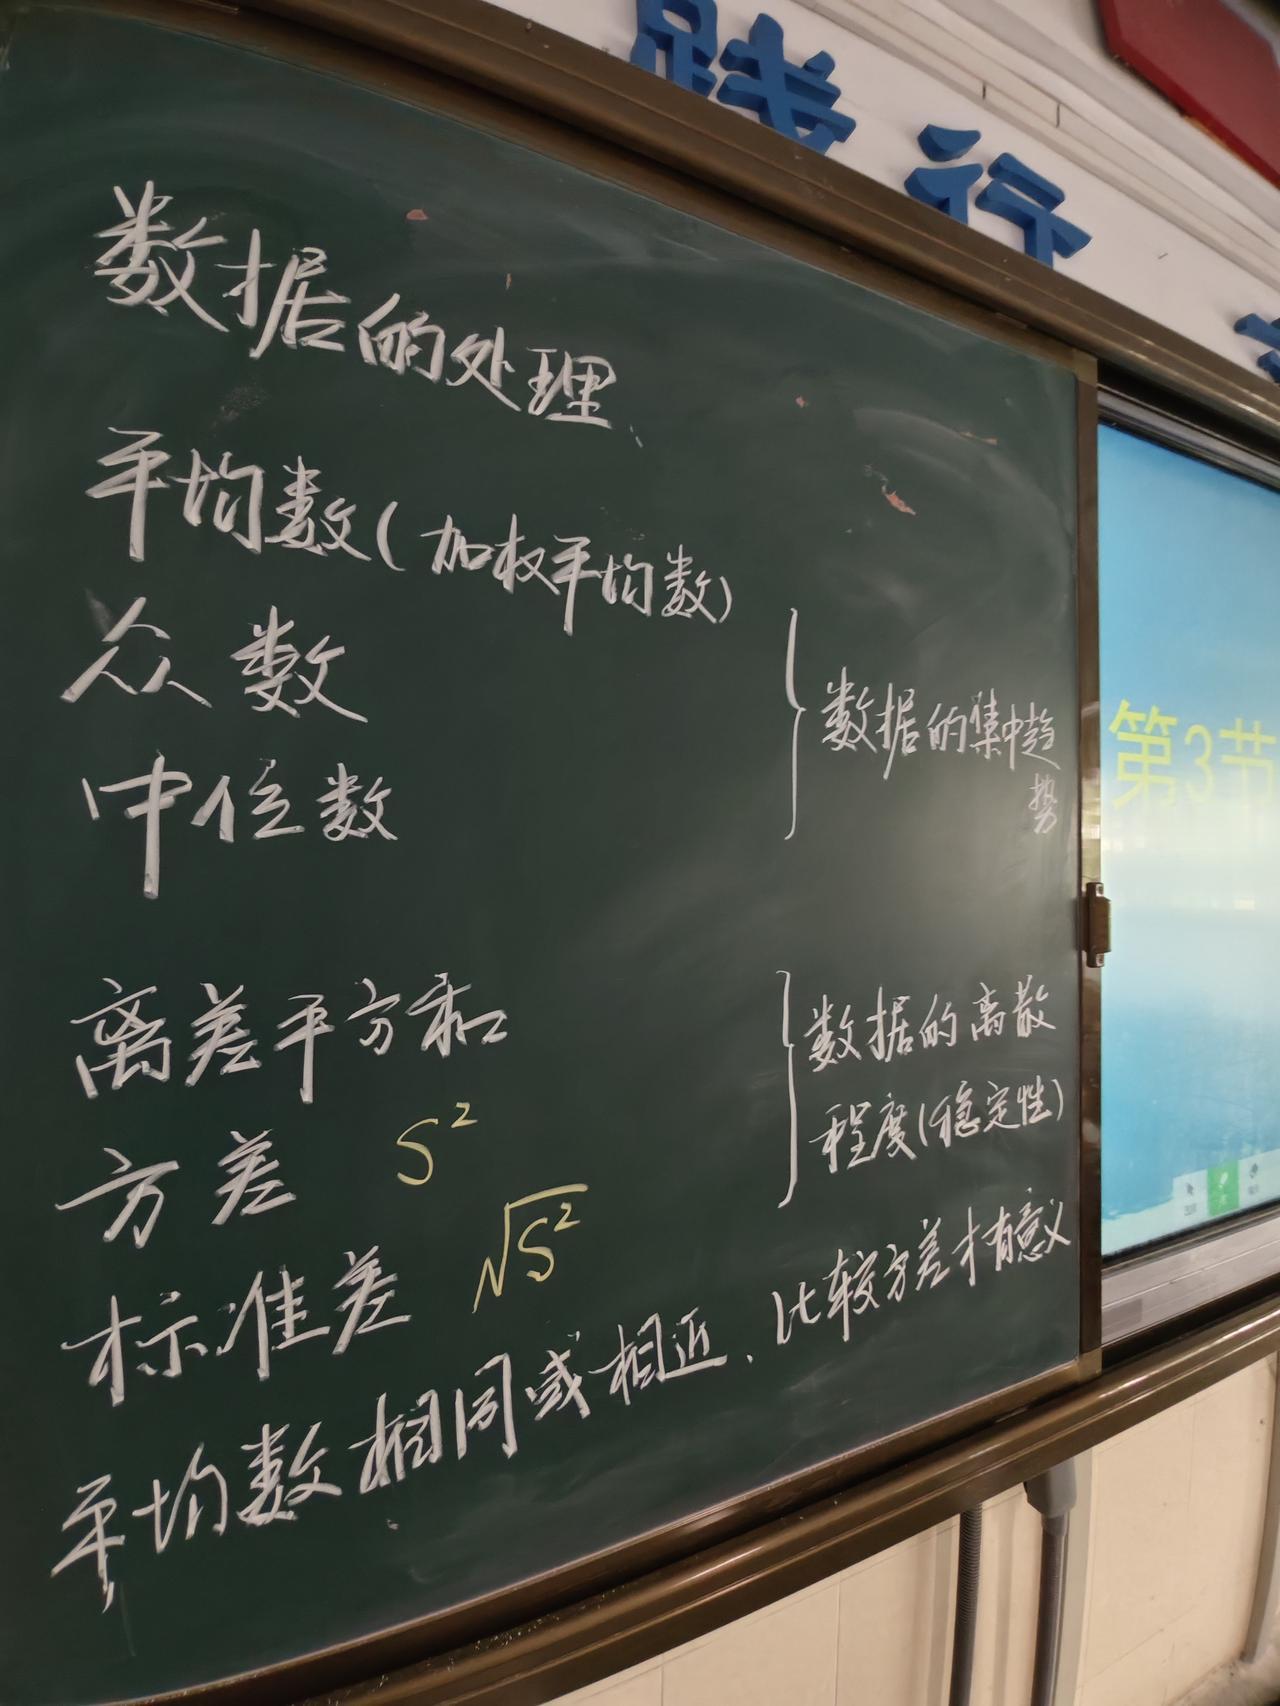 践行
数据的处理
平均数(加权平均数)
众数
中位数
数据的集中趋
势
第3节
离差平方和
方差 S²
标准差 √S²
数据的离散
程度(稳定性)
平均数相同或相近，比较方差才有意义